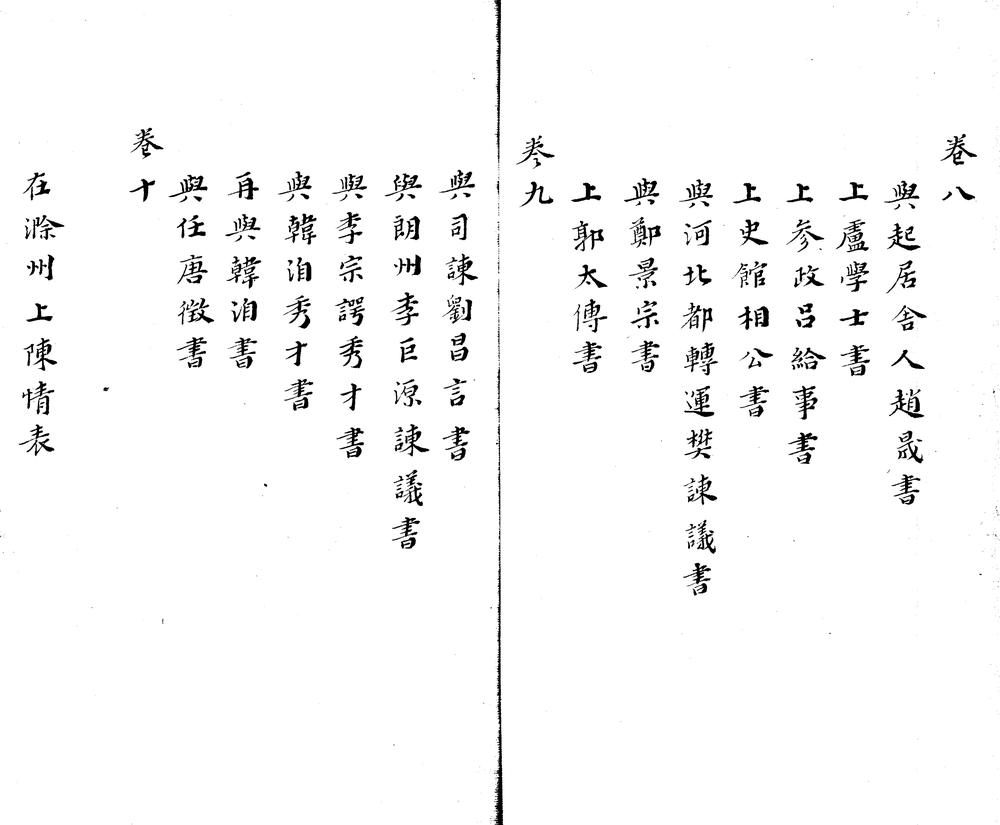 卷八
與起居舍人趙晟書
上盧學士書
上參政呂給事書
上史館相公書
與河北都轉運樊諫議書
與鄭景宗書
上郭太傅書
卷九
與司諫劉昌言書
與朗州李巨源諫議書
與李宗諤秀才書
與韓洎秀才書
再與韓洎書
與任唐徵書
卷十
在滁州上陳情表